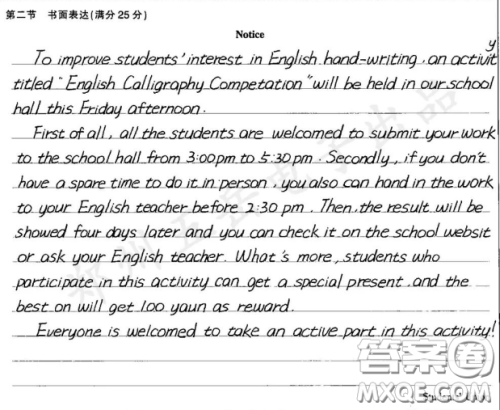 第二节 书面表达(满分25分)
Notice
To improve students' interest in English hand-writing, an activity
titled "English Calligraphy Competation" will be held in our school
hall this Friday afternoon.
First of all, all the students are welcomed to submit your work
to the school hall from 3:00pm to 5:30pm. Secondly, if you don't
have a spare time to do it in person, you also can hand in the work
to your English teacher before 2:30 pm. Then, the result will be
showed four days later and you can check it on the school websit
or ask your English teacher. What's more, students who
participate in this activity can get a special present, and the
best on will get 100 yaun as reward.
Everyone is welcomed to take an active part in this activity!
答案圈
MXQE.COM